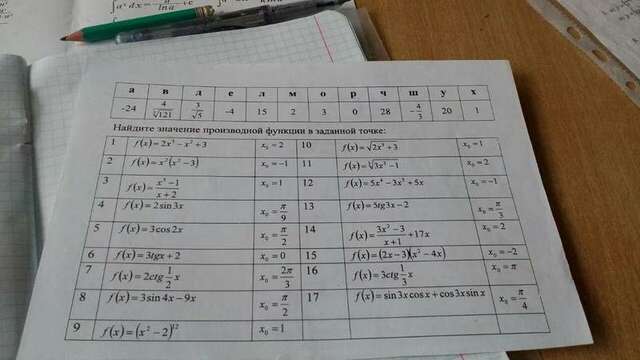 а в д е л м о р ч ш у х
-24 4/∛121 3/√5 -4 15 2 3 0 28 -4/3 20 1
Найдите значение производной функции в заданной точке:
1 f(x)=2x³-x²+3 x₀=2 10 f(x)=√2x³+3 x₀=1
2 f(x)=x²(x²-3) x₀=-1 11 f(x)=∛3x²-1 x₀=2
3 f(x)=x³-1/x+2 x₀=1 12 f(x)=5x⁴-3x³+5x x₀=-1
4 f(x)=2sin3x x₀=π/9 13 f(x)=5tg3x-2 x₀=π/3
5 f(x)=3cos2x x₀=π/2 14 f(x)=3x²-3/x+1+17x x₀=2
6 f(x)=3tgx+2 x₀=0 15 f(x)=(2x-3)(x²-4x) x₀=-2
7 f(x)=2ctg1/2x x₀=2π/3 16 f(x)=3ctg1/3x x₀=π
8 f(x)=3sin4x-9x x₀=π/2 17 f(x)=sin3xcosx+cos3xsinx x₀=π/4
9 f(x)=(x²-2)¹² x₀=1